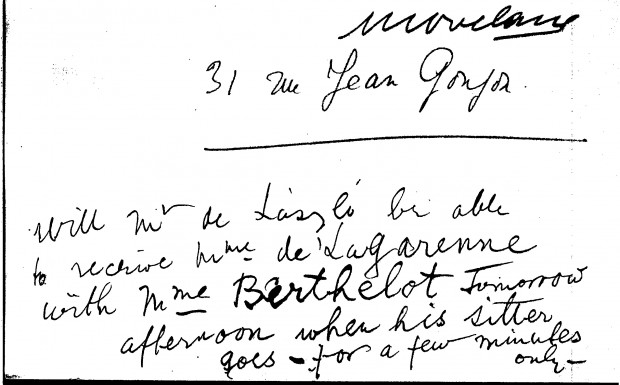 31 rue Jean Goujon
will Mr de László be able
to receive Mme de Lagarenne
with Mme Berthelot Tomorrow
afternoon when his sitter
goes – for a few minutes
only –